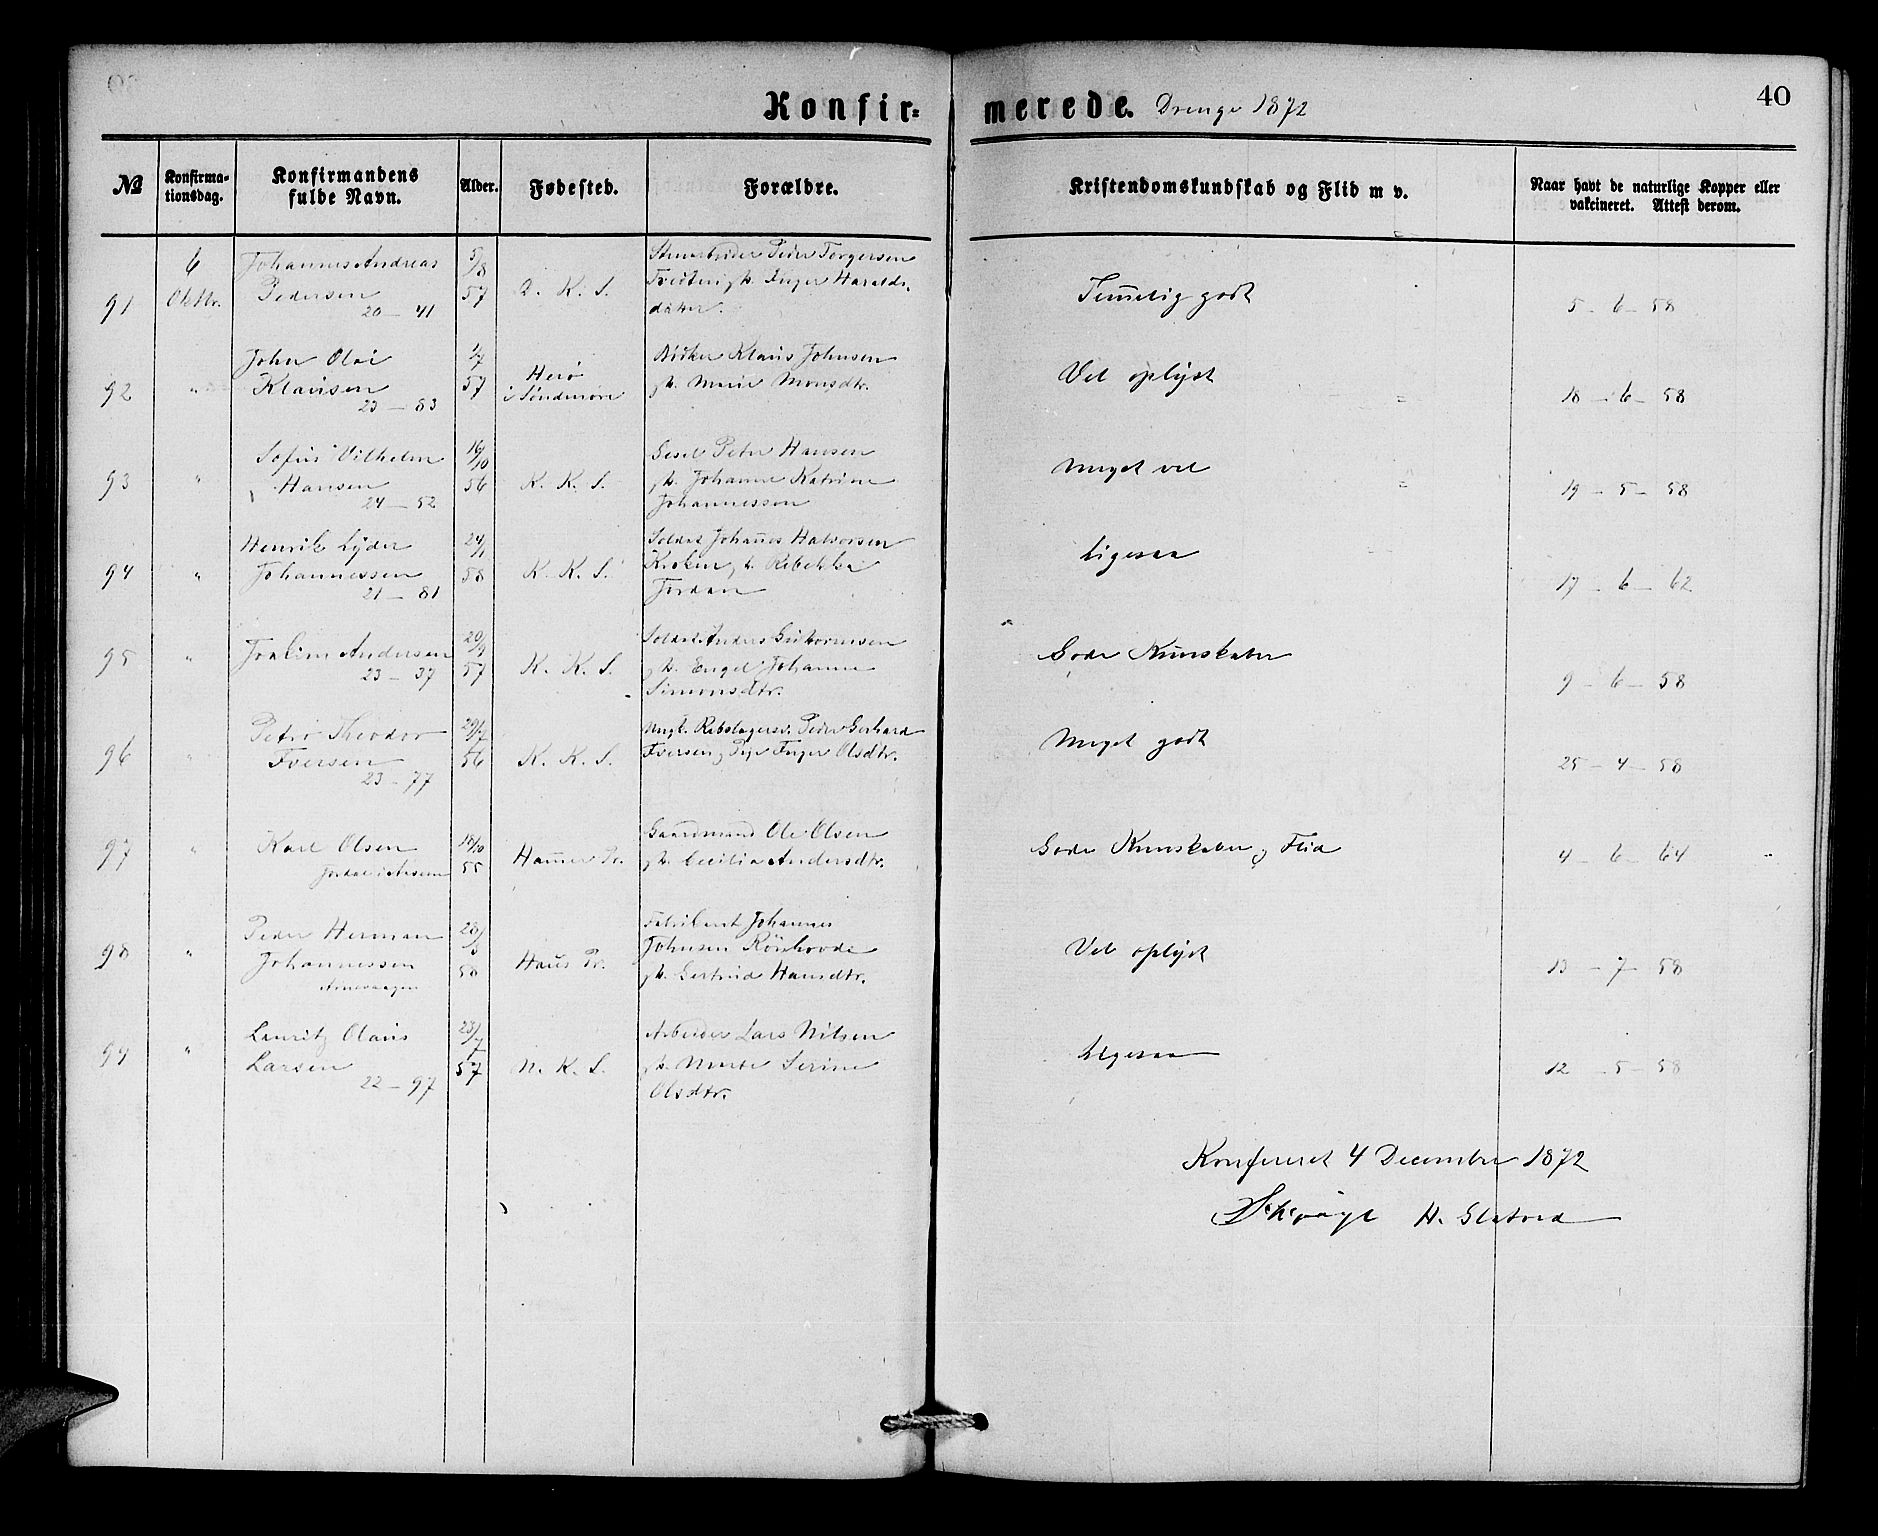 Konfir= merede. Drenge 1872
40
№ Konfirma-tionsdag. Konfirmandens fulde Navn. Alder. Fødested. Forældre. Kristendomskundskab og Flid m v. Naar havt de naturlige Kopper eller vakcineret. Attest derom.
6 Johannes Andreas 5/8 Peder Torgersen
91 Oktbr. Pedersen 57 D. K. S. Inger Haralds- Temelig godt 5 - 6 - 58
20 - 41 datter.
John Olai 1/7 Bødker Klaus Johnsen
92 " Klausen 57 Herø i Søndmøre h. Marie Monsdtr. Vel oplyst 18 - 6 - 58
23 - 83
Sofus Vilhelm 16/10 Gesel Peter Hansen Meget vel
93 " Hansen 56 K. K. S. h. Johanne Katrine 19 - 5 - 58
24 - 52 Johannesson
Henrik Lyder 24/1 Soldat Johanes Halvorsen Ligesaa
94 " Johannessen 58 K. K. S. Kroken h. Rebekka 17 - 6 - 62
21 - 81 Jordan
20/9 Soldat Anders Guttormsen
95 " Joakim Andersen 57 K. K. S. h. Engel Johanne Gode Kunskaber 9 - 6 - 58
23 - 37 Simonsdtr.
Petro Theodor 29/7 Ungk. Rebslagersv. Peder Gerhard Meget godt
96 " Iversen 56 K. K. S. Iversen, Pige Inger Olsdtr. 25 - 4 - 58
23 - 77
97 " Karl Olsen 18/10 Gaardmand Ole Olsen Gode Kunskaber og Flid
55 Hamer Pr. h. Cecilia Andersdtr. 4 - 6 - 64
Peder Herman 28/ Fabrikant Johannes
98 " Johannessen 58 Haus Pr. Johnsen Vel oplyst 13 - 7 - 58
Arnevaagen h. Gertrud Hansdtr.
Lauritz Olaus 23/7 Arbeider Lars Nilsen
99 " Larsen 57 N. K. S. h. Marte Serine Ligesaa 12 - 5 - 58
22 - 97 Olsdtr.
Konfereret 4 December 1872
H.